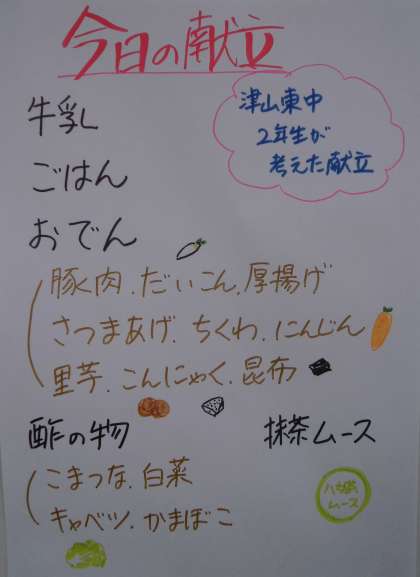 今日の献立
津山東中
2年生が
考えた献立
牛乳
ごはん
おでん
豚肉.だいこん.厚揚げ
さつまあげ.ちくわ.にんじん
里芋.こんにゃく.昆布
酢の物
抹茶ムース
こまつな.白菜
キャベツ.かまぼこ
ムース